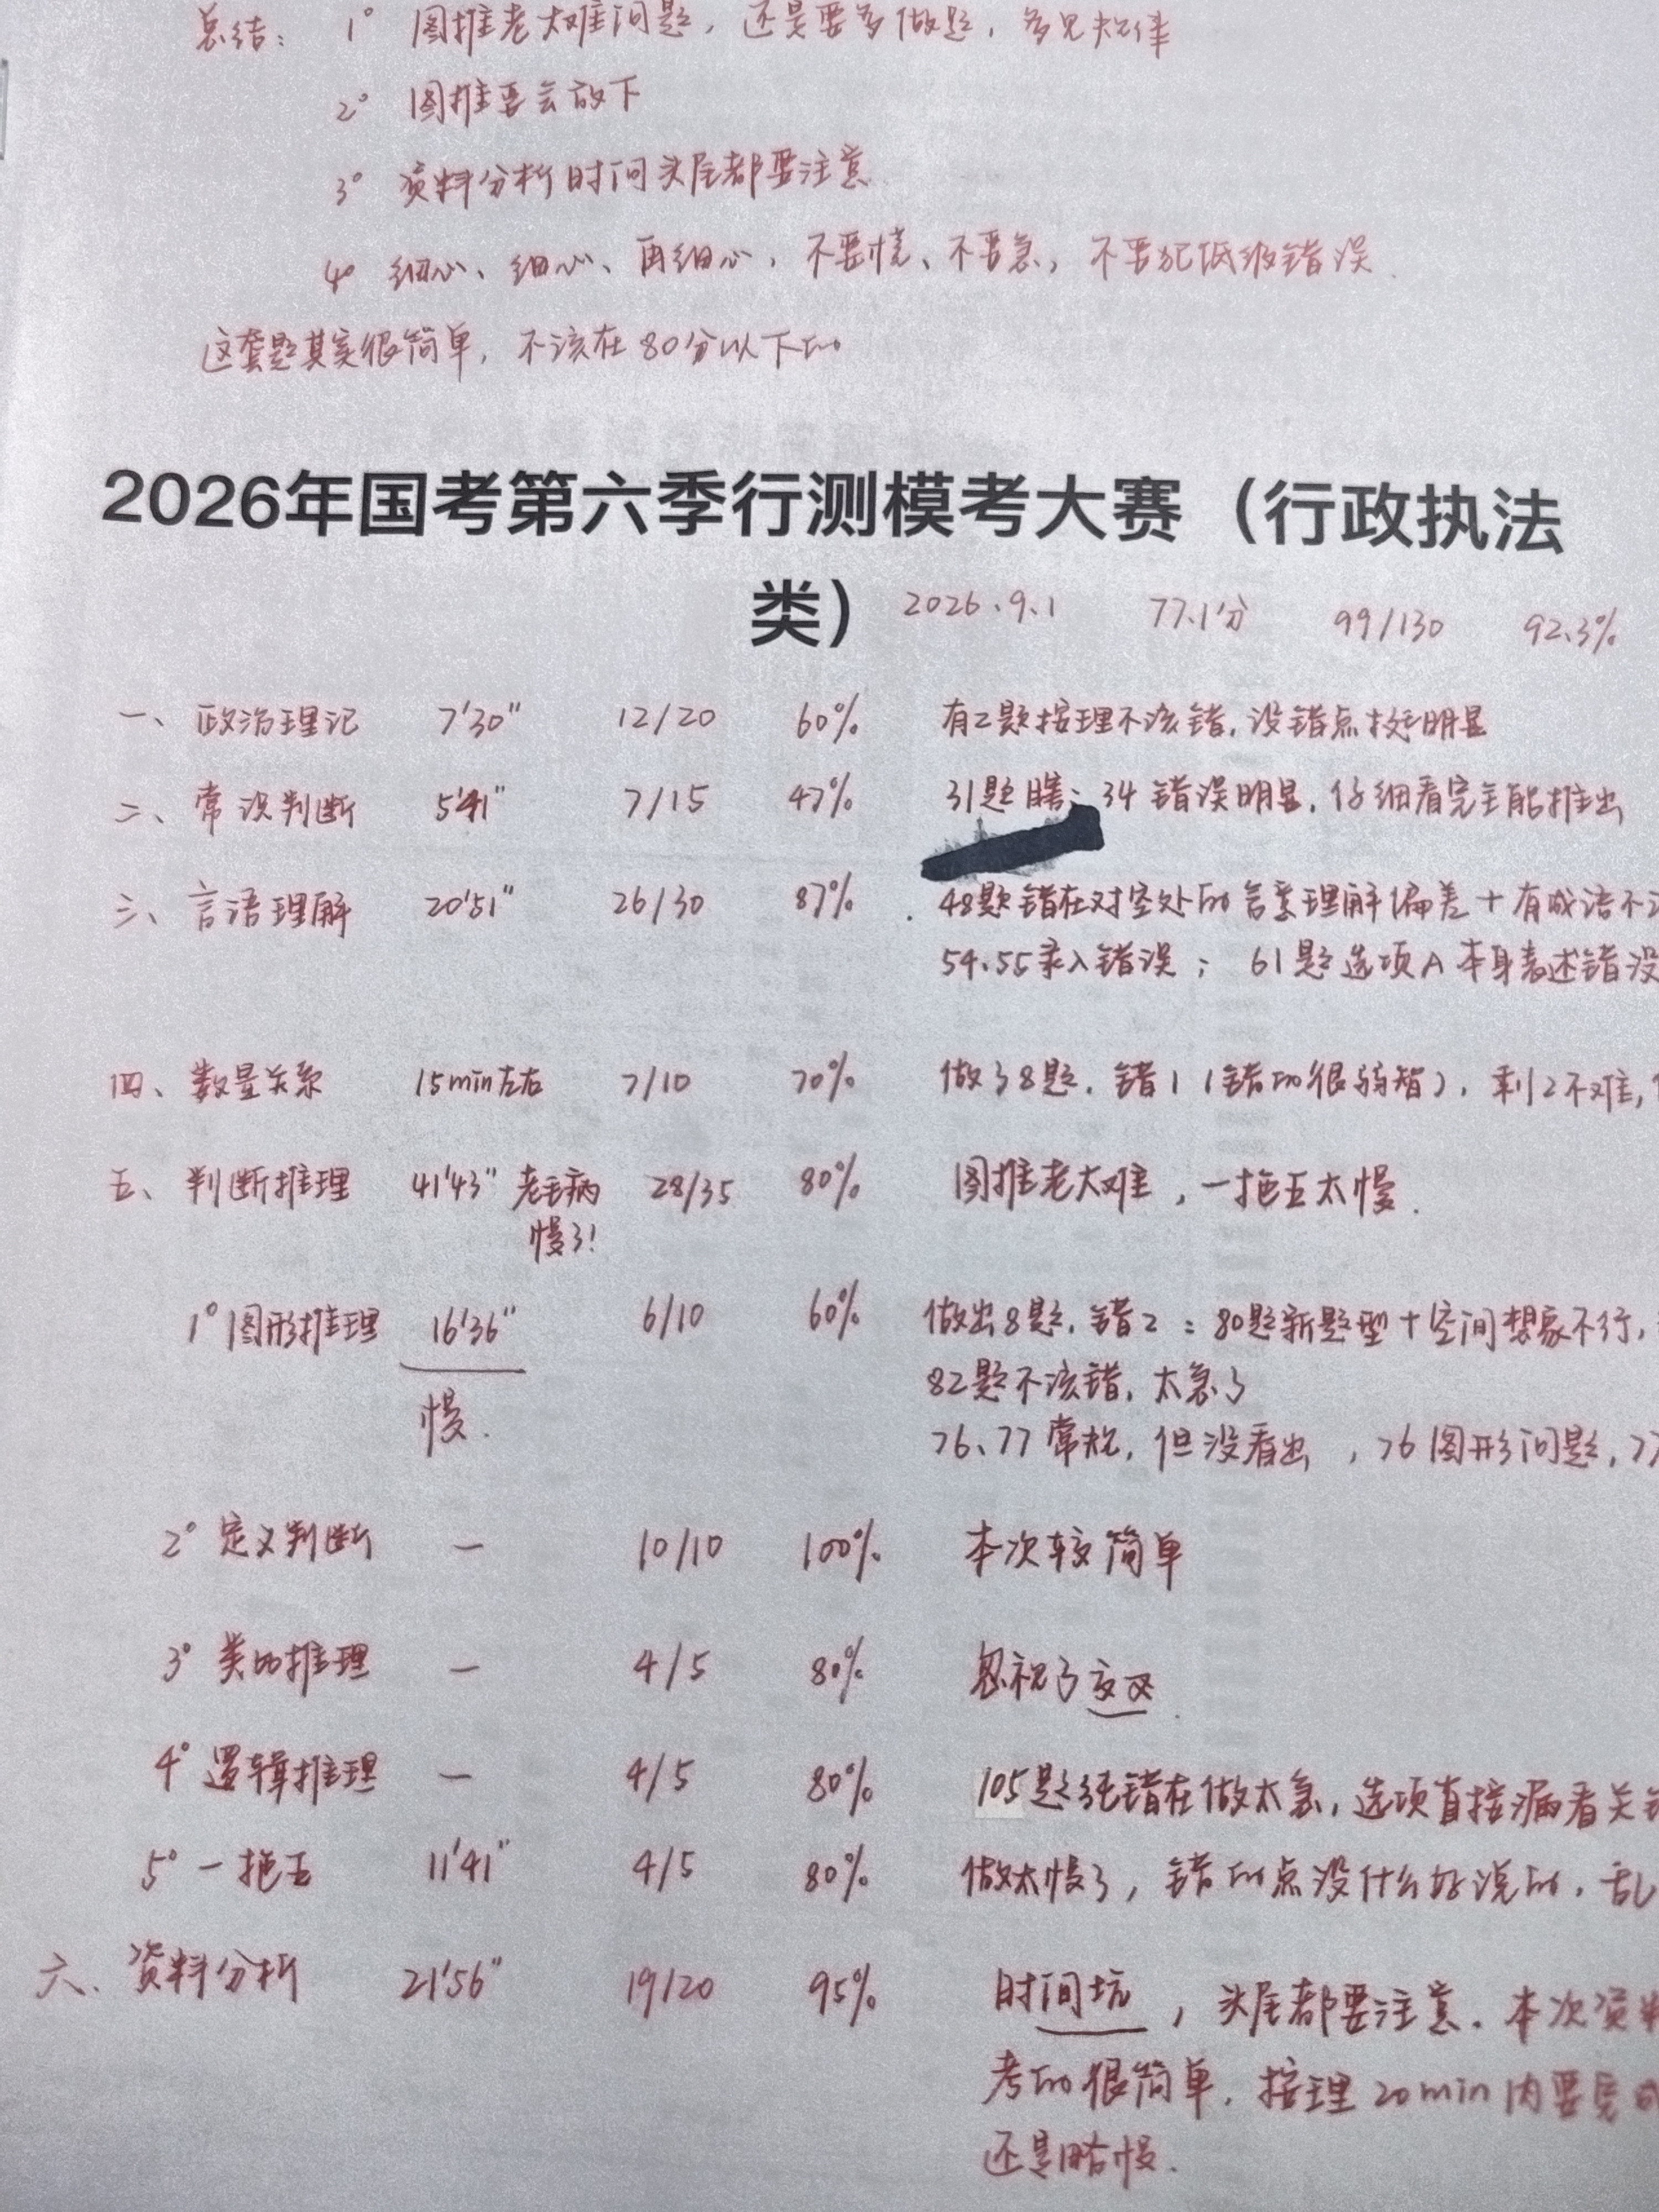 总结： 1° 图推老大难问题，还是要多做题，多见规律
2° 图推要会放下
3° 资料分析时间头尾都要注意
4° 细心、细心、再细心，不要慌、不要急，不要犯低级错误.
这套题其实很简单，不该在80分以下的
2026年国考第六季行测模考大赛（行政执法
类） 2026.9.1 77.1分 99/130 92.3%
一、政治理论 7'30" 12/20 60% 有2题按理不该错，没错点挺明显
二、常识判断 5'41" 7/15 47% 31题瞎；34错误明显，仔细看完全能推出
三、言语理解 20'51" 26/30 87% 48题错在对空处的含义理解偏差+有成语不
54.55录入错误； 61题选项A本身表述错误
四、数量关系 15min左右 7/10 70% 做了8题，错1（错的很弱智），剩2不难，
五、判断推理 41'43" 老毛病 28/35 80% 图推老大难，一拖五太慢.
慢了！
1°图形推理 16'36" 6/10 60% 做出8题，错2：80题新题型+空间想象不行，
82题不该错，太急了
慢. 76、77常规，但没看出，76图形问题，77
2°定义判断 — 10/10 100% 本次较简单
3°类比推理 — 4/5 80% 忽视了交叉.
4°逻辑推理 — 4/5 80% 105题纯错在做太急，选项直接漏看关
5°一拖五 11'41" 4/5 80% 做太慢了，错的点没什么好说的，乱
六、资料分析 21'56" 19/20 95% 时间坑，头尾都要注意.本次资料
考的很简单，按理20min内要完成
还是略慢.